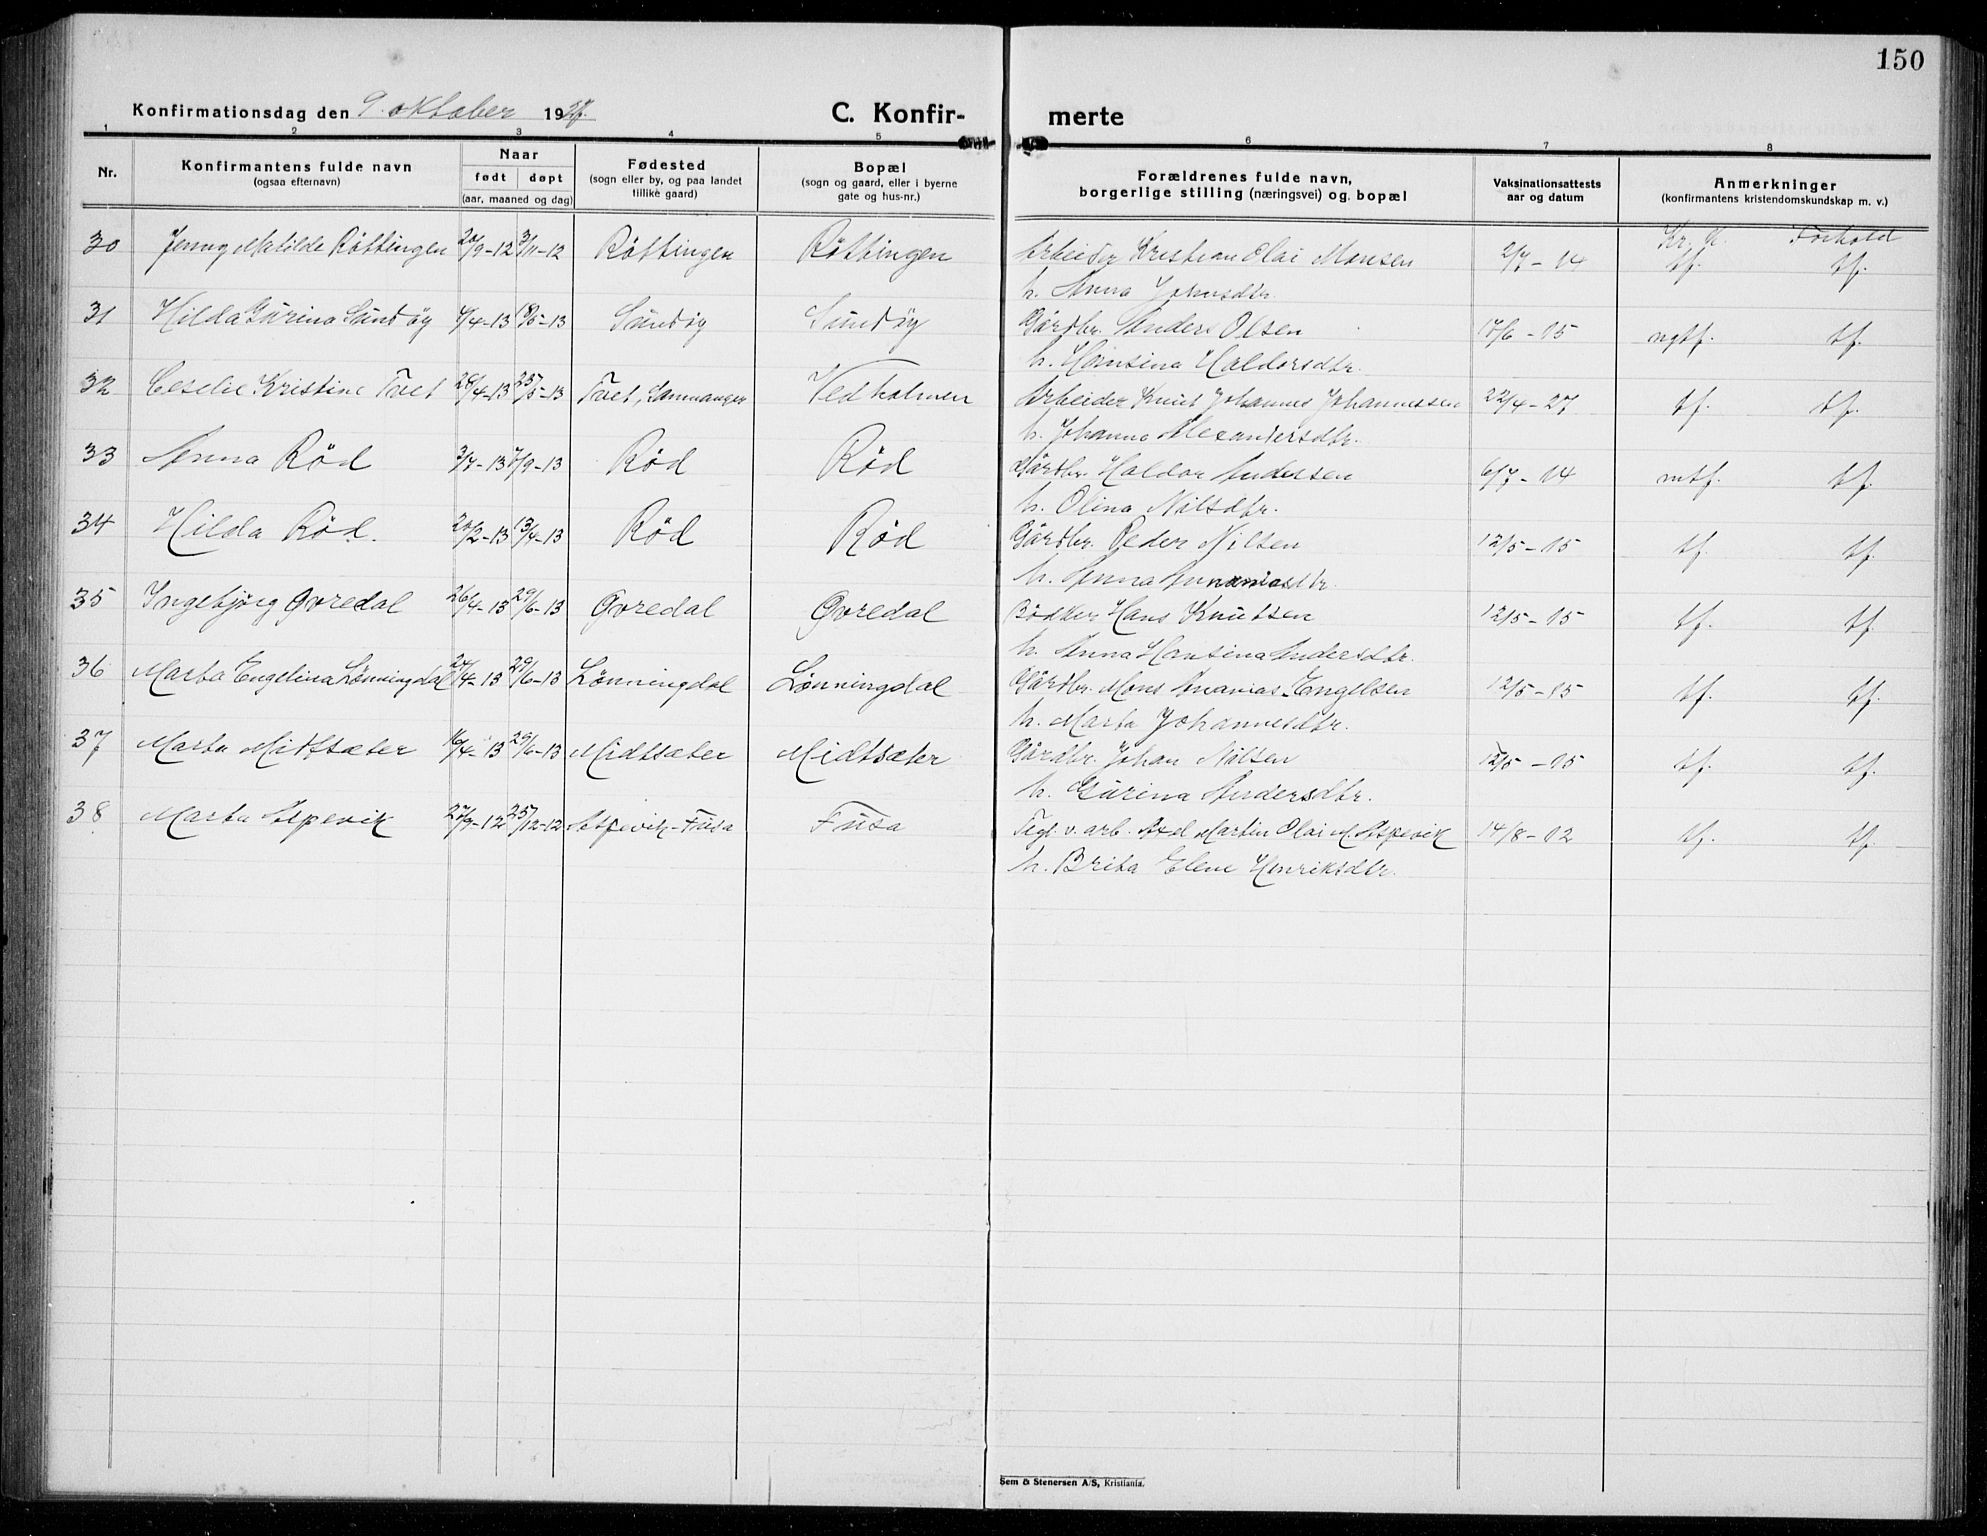 150
Konfirmationsdag den 9. oktober 1927.
C. Konfir-merte
1 2 3 4 5 6 7 8
Nr. Konfirmantens fulde navn (ogsaa efternavn) Naar født døpt (aar, maaned og dag) Fødested (sogn eller by, og paa landet tillike gaard) Bopæl (sogn og gaard, eller i byerne gate og hus-nr.) Forældrenes fulde navn, borgerlige stilling (næringsvei) og bopæl Vaksinationsattests aar og datum Anmerkninger (konfirmantens kristendomskundskap m. v.)
Kr. k. Forhold
30 Jenny Matilde Røttingen 20/9-12 3/11-12 Røttingen Røttingen Arbeider Kristian Olai Monsen 2/7-14 tf. tf.
h. Anna Johnsdtr.
31 Hilda Gurina Sundöy 4/4-13 18/5-13 Sundöy Sundöy Gårdbr. Anders Olsen 17/6-15 ngtf. tf.
h. Hansina Haldorsdtr.
32 Ceselie Kristine Tvet 28/4-13 25/5-13 Tvet, Samnanger Vedholmen Arbeider Knut Johannes Johannessen 22/4-27 tf. tf.
h. Johanna Alexandersdtr.
33 Anna Rød 3/7-13 7/9-13 Rød Rød Gårdbr. Haldor Andersen 6/7-14 mtf. tf.
h. Olina Nilsdtr.
34 Hilda Rød. 20/2-13 13/4-13 Rød Rød Gårdbr. Peder Nilsen 12/5-15 tf. tf.
h. Anna Ananiasdtr.
35 Ingebjørg Øvredal 26/4-13 29/6-13 Øvredal Øvredal Bødker Hans Knutsen 12/5-15 tf. tf.
h. Anna Hansina Andersdtr.
36 Marta Engelina Lønningdal 27/4-13 29/6-13 Lønningdal Lønningdal Gårdbr. Mons Ananias Engelsen 12/5-15 tf. tf.
h. Marta Johannesdtr.
37 Marta Midtsæter 16/4-13 29/6-13 Midtsæter Midtsæter Gårdbr. Johan Nilsen 12/5-15 tf. tf.
h. Gurina Andersdtr.
38 Marta Aspevik 27/9-12 25/12-12 Aspevik-Fusa Fusa Tegl.v.arb. Axel Martin Olai M. Aspevik 14/8-12 tf. tf.
h. Brita Elene Henriksdtr.
Sem & Stenersen A/S, Kristiania.